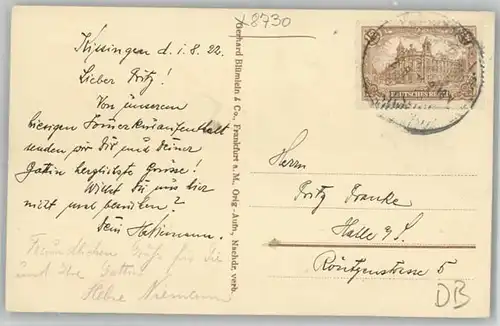 x8730
Kissingen d. 1.8.22.
Lieber Fritz!
Von unserem
hiesigen Sommerkuraufenthalt
senden wir Dir und Deiner
Gattin herzlichste Grüsse!
Willst Du uns hier
nicht mal besuchen?
Dein
Freundlichen Gruß für Sie
und Ihre Gattin
Gerhard Blümlein & Co., Frankfurt a. M., Orig.-Aufn., Nachdr. verb.
DEUTSCHES REICH
Herrn
Fritz Franke
Halle a/S.
Röntgenstrasse 5
DB